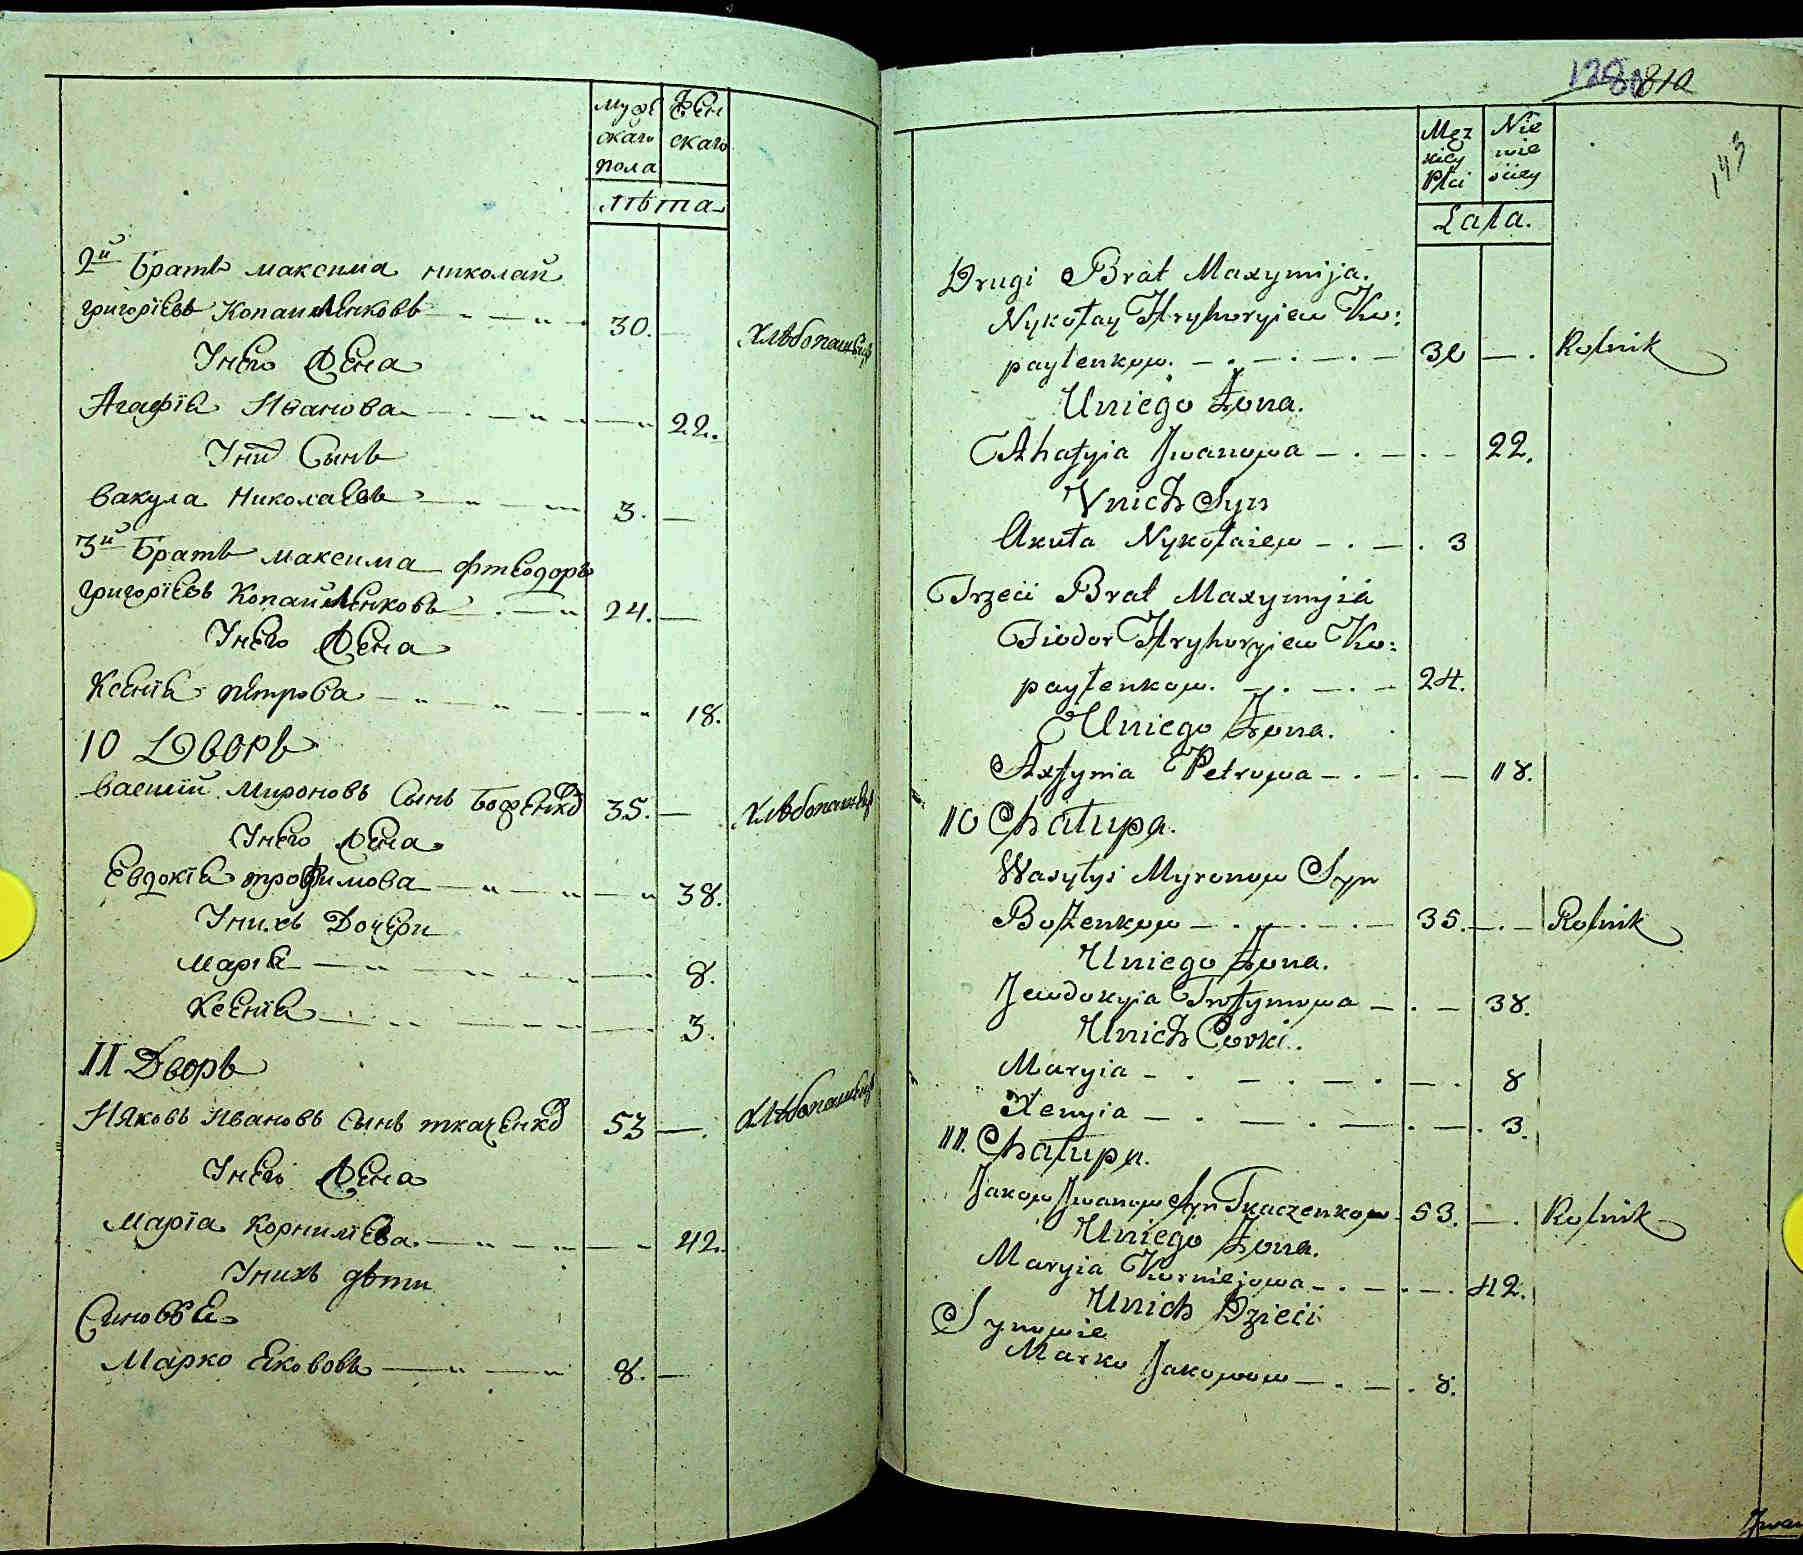 Мужскаго пола
Женскаго
Лѣта
2й Братъ максима николай
григорієвъ Копайленковъ 30. — Хлѣбопашецъ
Унего Жена
Агафія Иванова 22.
Уних Сынъ
вакула николаевъ 3. —
3й Братъ максима фтеодоръ
григорієвъ Копайленковъ 24. —
Унего Жена
Ксенія петрова 18.
10 Дворъ
василий Мироновъ Сынъ Боженко 35. — Хлѣбопашецъ
Унего Жена
Евдокія трофимова 38.
Унихъ Дочери
Марія 8.
Ксенія 3.
11 Дворъ
Ияковъ Ивановъ Сынъ ткаченко 53 — Хлѣбопашецъ
Унего Жена
Марія Корниліева 42.
Унихъ дѣти
Синовѣе
Марко Якововъ 8. —
810
143
Męzkiey Płci
Niewieściey
Lata.
Drugi Brat Maxymija.
Nykołay Hryhoryiew Ko:
paylenkow. 30 — Rolnik
Uniego Żona.
Ahafyia Jwanowa 22.
Vnich Syn
Akuła Nykołaiew 3
Trzeci Brat Maxymyia
Fiodor Hryhoryiew Ko:
paylenkow. 24.
Uniego Żona.
Axfynia Petrowa 18.
10 Chałupa.
Wasylyi Myronow Syn
Bożenkow 35. — Rolnik
Uniego Żona.
Jewdokyia Trofymowa 38.
Unich Corki.
Maryia 8
Xenyia 3.
11. Chałupa.
Jakow Jwanow Syn Tkaczenkow 53. — Rolnik
Uniego Żona.
Maryia Korniejowa 42.
Unich Dzieci
Synowie
Marko Jakowow 8.